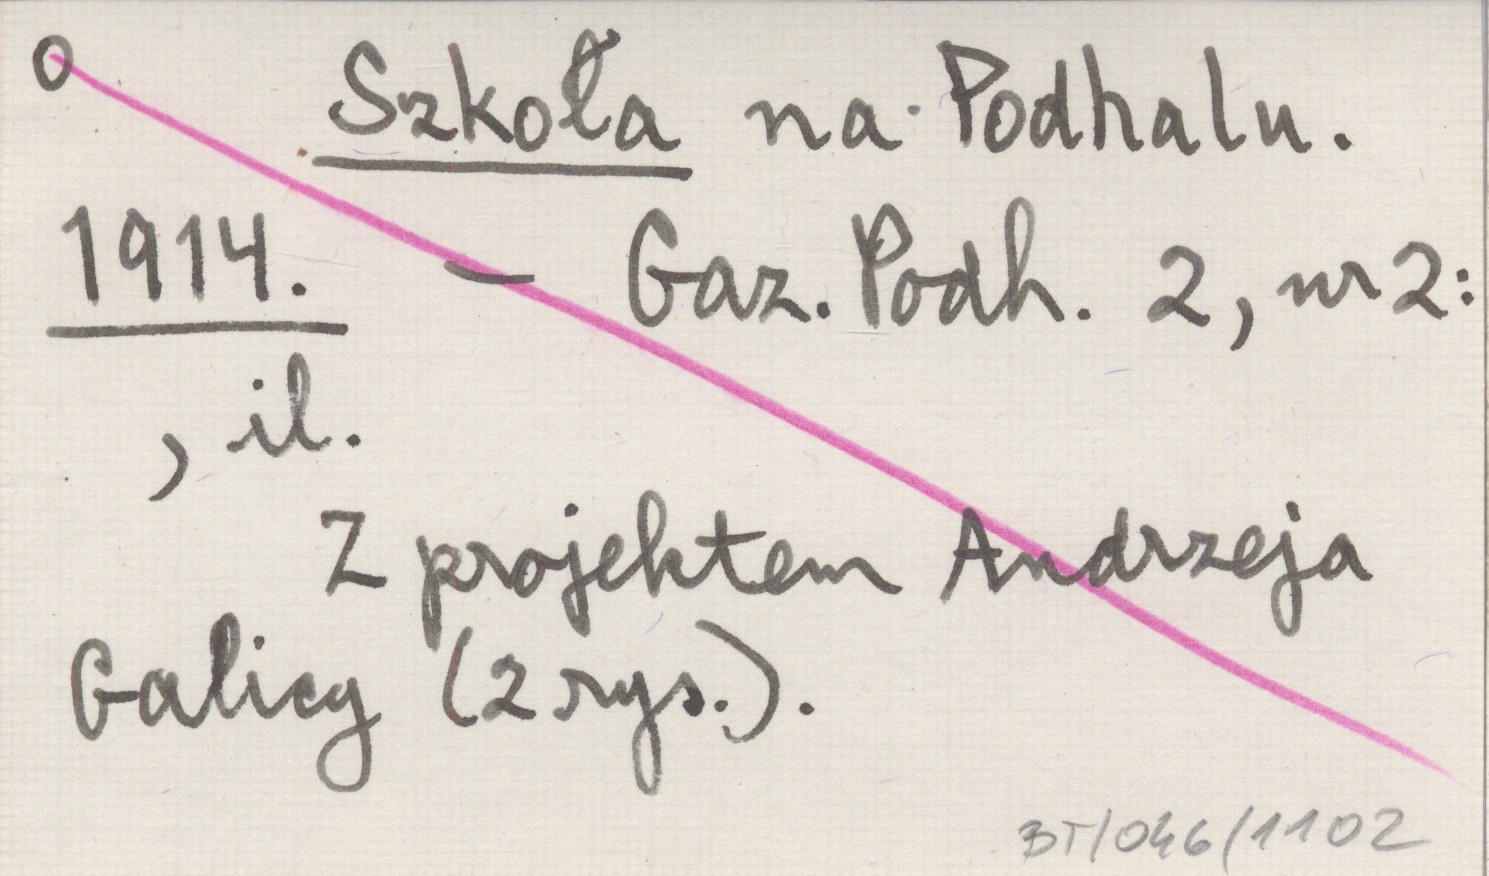 O
Szkoła na Podhalu.
1914. – Gaz. Podh. 2, nr 2:
, il.
Z projektem Andrzeja
Galicy (2 rys.).
BT/046/1102